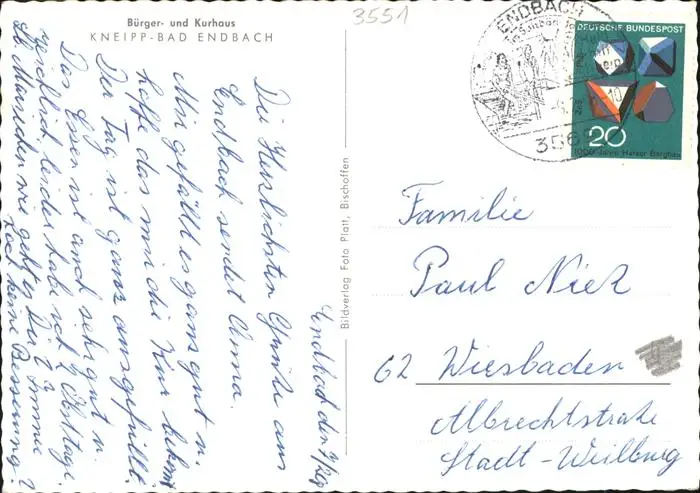 Bürger- und Kurhaus
KNEIPP-BAD ENDBACH
3551
ENDBACH
DEUTSCHE BUNDESPOST
20
1000 Jahre Harzer Bergbau
Endbach den
Die Herzlichsten Grüße aus
Endbach sendet Anna.
Mir gefällt es ganz gut u.
hoffe das mir die Kur bekommt
Der Tag ist ganz ausgefüllt.
Das Essen ist auch sehr gut u.
reichlich, leider hab ich 2 Obsttag.
Lb. Mariechen wie geht es Dir? Immer
noch keine Besserung?
Bildverlag Foto Platt, Bischoffen
Familie
Paul Niel
62 Wiesbaden
Albrechtstraße
Stadt-Weilburg